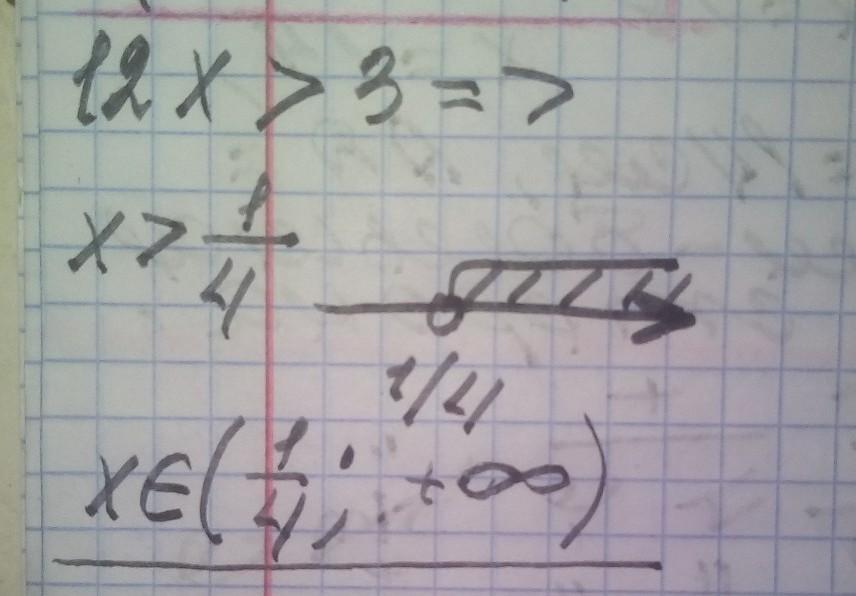 12x > 3 =>
x > 1/4
1/4
x∈(1/4; +∞)